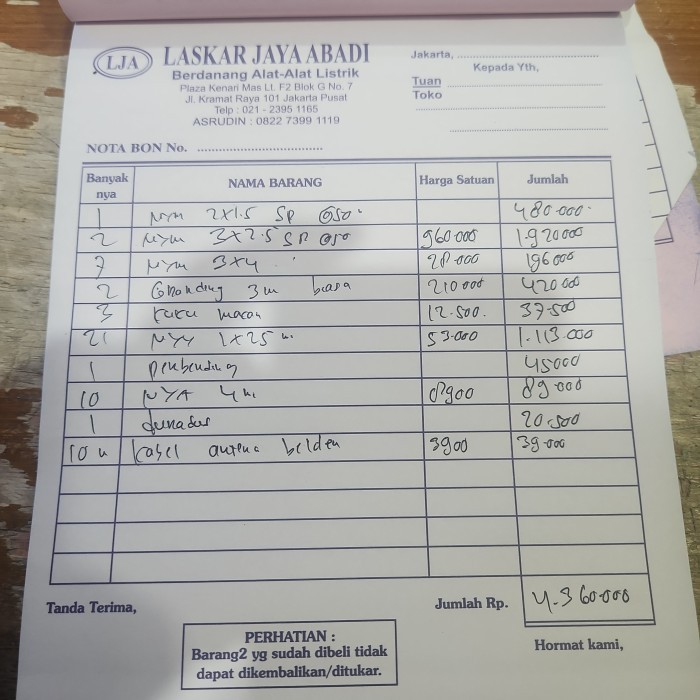 LJA
LASKAR JAYA ABADI
Berdanang Alat-Alat Listrik
Plaza Kenari Mas Lt. F2 Blok G No. 7
Jl. Kramat Raya 101 Jakarta Pusat
Telp : 021 - 2395 1165
ASRUDIN : 0822 7399 1119
Jakarta, ..........
Kepada Yth,
Tuan
Toko
NOTA BON No. ..........
Banyak nya NAMA BARANG Harga Satuan Jumlah
1 NYM 2x1.5 SP 480.000
2 NYM 3x2.5 SP 960.000 1.920000
7 NYM 3x4 28.000 196000
2 Gronding 3m biasa 210000 420000
3 kuku macan 12.500. 37.500
21 NYY 1x25 m. 53.000 1.113.000
1 45000
10 NYA 4m 8900 89.000
1 20.500
10 m kabel antena belden 3900 39.000
Tanda Terima,
Jumlah Rp. 4.360.000
PERHATIAN :
Barang2 yg sudah dibeli tidak
dapat dikembalikan/ditukar.
Hormat kami,